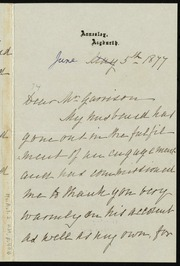 Annesley,
Aigburth.
June May 5th 1877
Dear Mr Garrison
My husband has
gone out in the fulfil-
ment of an engagement
and has commissioned
me to thank you very
warmly on his account
as well as my own for